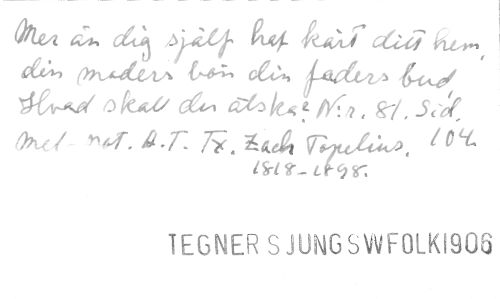 Mer än dig själf haf kärt ditt hem,
din moders bön din faders bud,
Hvad skall du älska? N:r. 81. Sid.
mel- not. A.T. Tx. Zach Topelius. 104.
1818-1898.
TEGNER SJUNG SWFOLK1906